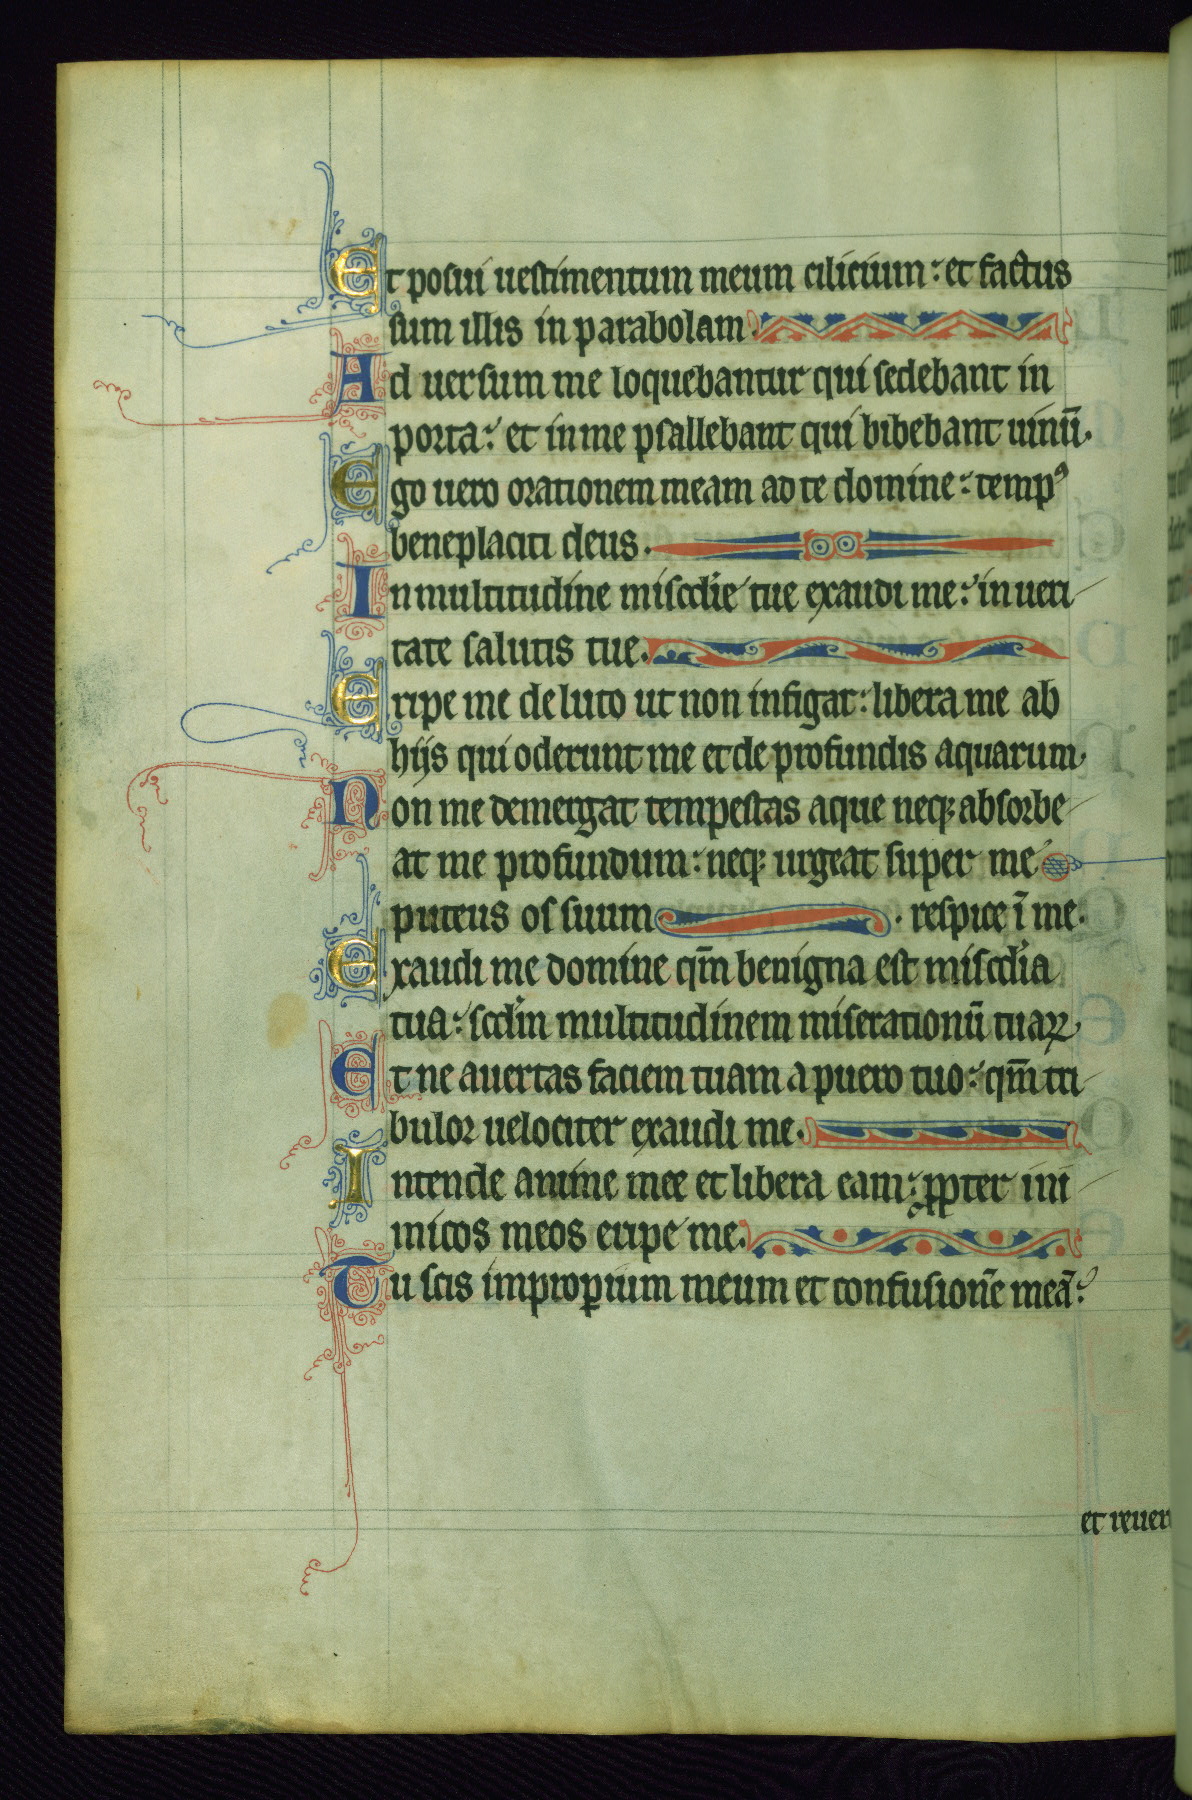 Et posui uestimentum meum cilicium: et factus
sum illis in parabolam.
Ad uersum me loquebantur qui sedebant in
porta: et in me psallebant qui bibebant uinū.
Ego uero orationem meam ad te domine: tempꝰ
beneplaciti deus.
In multitudine misc̄die tue exaudi me: in ueri
tate salutis tue.
Eripe me de luto ut non infigar: libera me ab
hijs qui oderunt me et de profundis aquarum.
Non me demergat tempestas aque neqꝫ absorbe
at me profundum: neqꝫ urgeat super me
puteus os suum. respice ī me.
Exaudi me domine qm̄ benigna est misc̄dia
tua: scdm̄ multitudinem miserationū tuaꝝ.
Et ne auertas faciem tuam a puero tuo: qm̄ tri
bulor uelociter exaudi me.
Intende anime mee et libera eam: ꝓpter ini
micos meos eripe me.
Tu scis improꝑium meum et confusionē meā:
et reuer